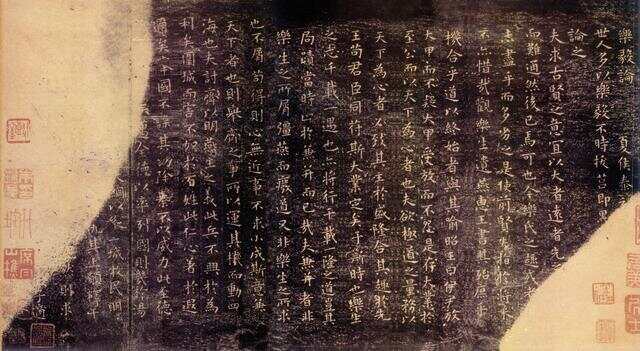 樂毅論 夏侯泰
世人多以樂毅不時拔莒即墨
論之
夫求古賢之意宜以大者遠者先
而難通然後已焉可也今樂氏之趣或
未盡乎而多劣之是使前賢失指於將來
不亦惜哉觀樂生遺燕惠王書其殆庶乎
機合乎道以終始者與其喻昭王曰伊尹放
大甲而不疑大甲受放而不怨是存大業於
至公而以天下為心者也夫欲極道之量務以
天下為心者必致其主於盛隆合其趣於先
王苟君臣同符斯大業定矣于斯時也樂生
之志千載一遇也亦將行千載一隆之道豈其
局蹟當時止於兼并而已哉夫兼并者非
樂生之所屑彊燕而廢道又非樂生之所求
也不屑苟得則心無近事不求小成斯意兼
天下者也則舉齊之事所以運其機而動四
海也夫討齊以明燕主之義此兵不興於為
利矣圍城而害不加於百姓此仁心著於遐
邇矣舉國不謀其功除暴不以威力此至德
邁全德以率列國則幾於湯
以縱二城牧民明